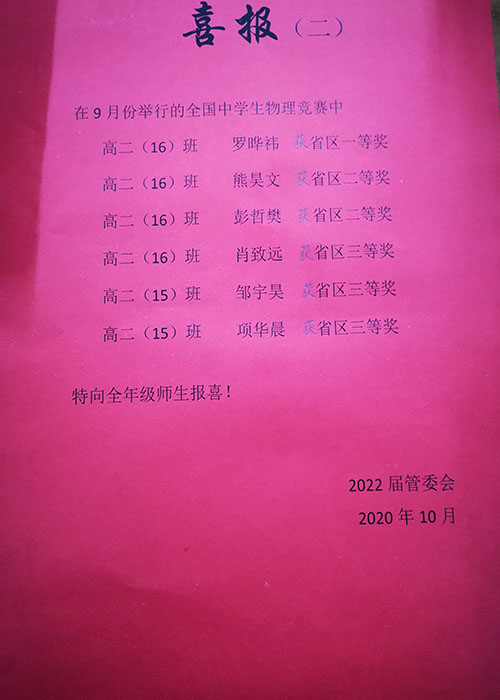 喜报（二）
在9月份举行的全国中学生物理竞赛中
高二（16）班 罗晔祎 获省区一等奖
高二（16）班 熊昊文 获省区二等奖
高二（16）班 彭哲樊 获省区二等奖
高二（16）班 肖致远 获省区三等奖
高二（15）班 邹宇昊 获省区三等奖
高二（15）班 项华晨 获省区三等奖
特向全年级师生报喜！
2022届管委会
2020年10月